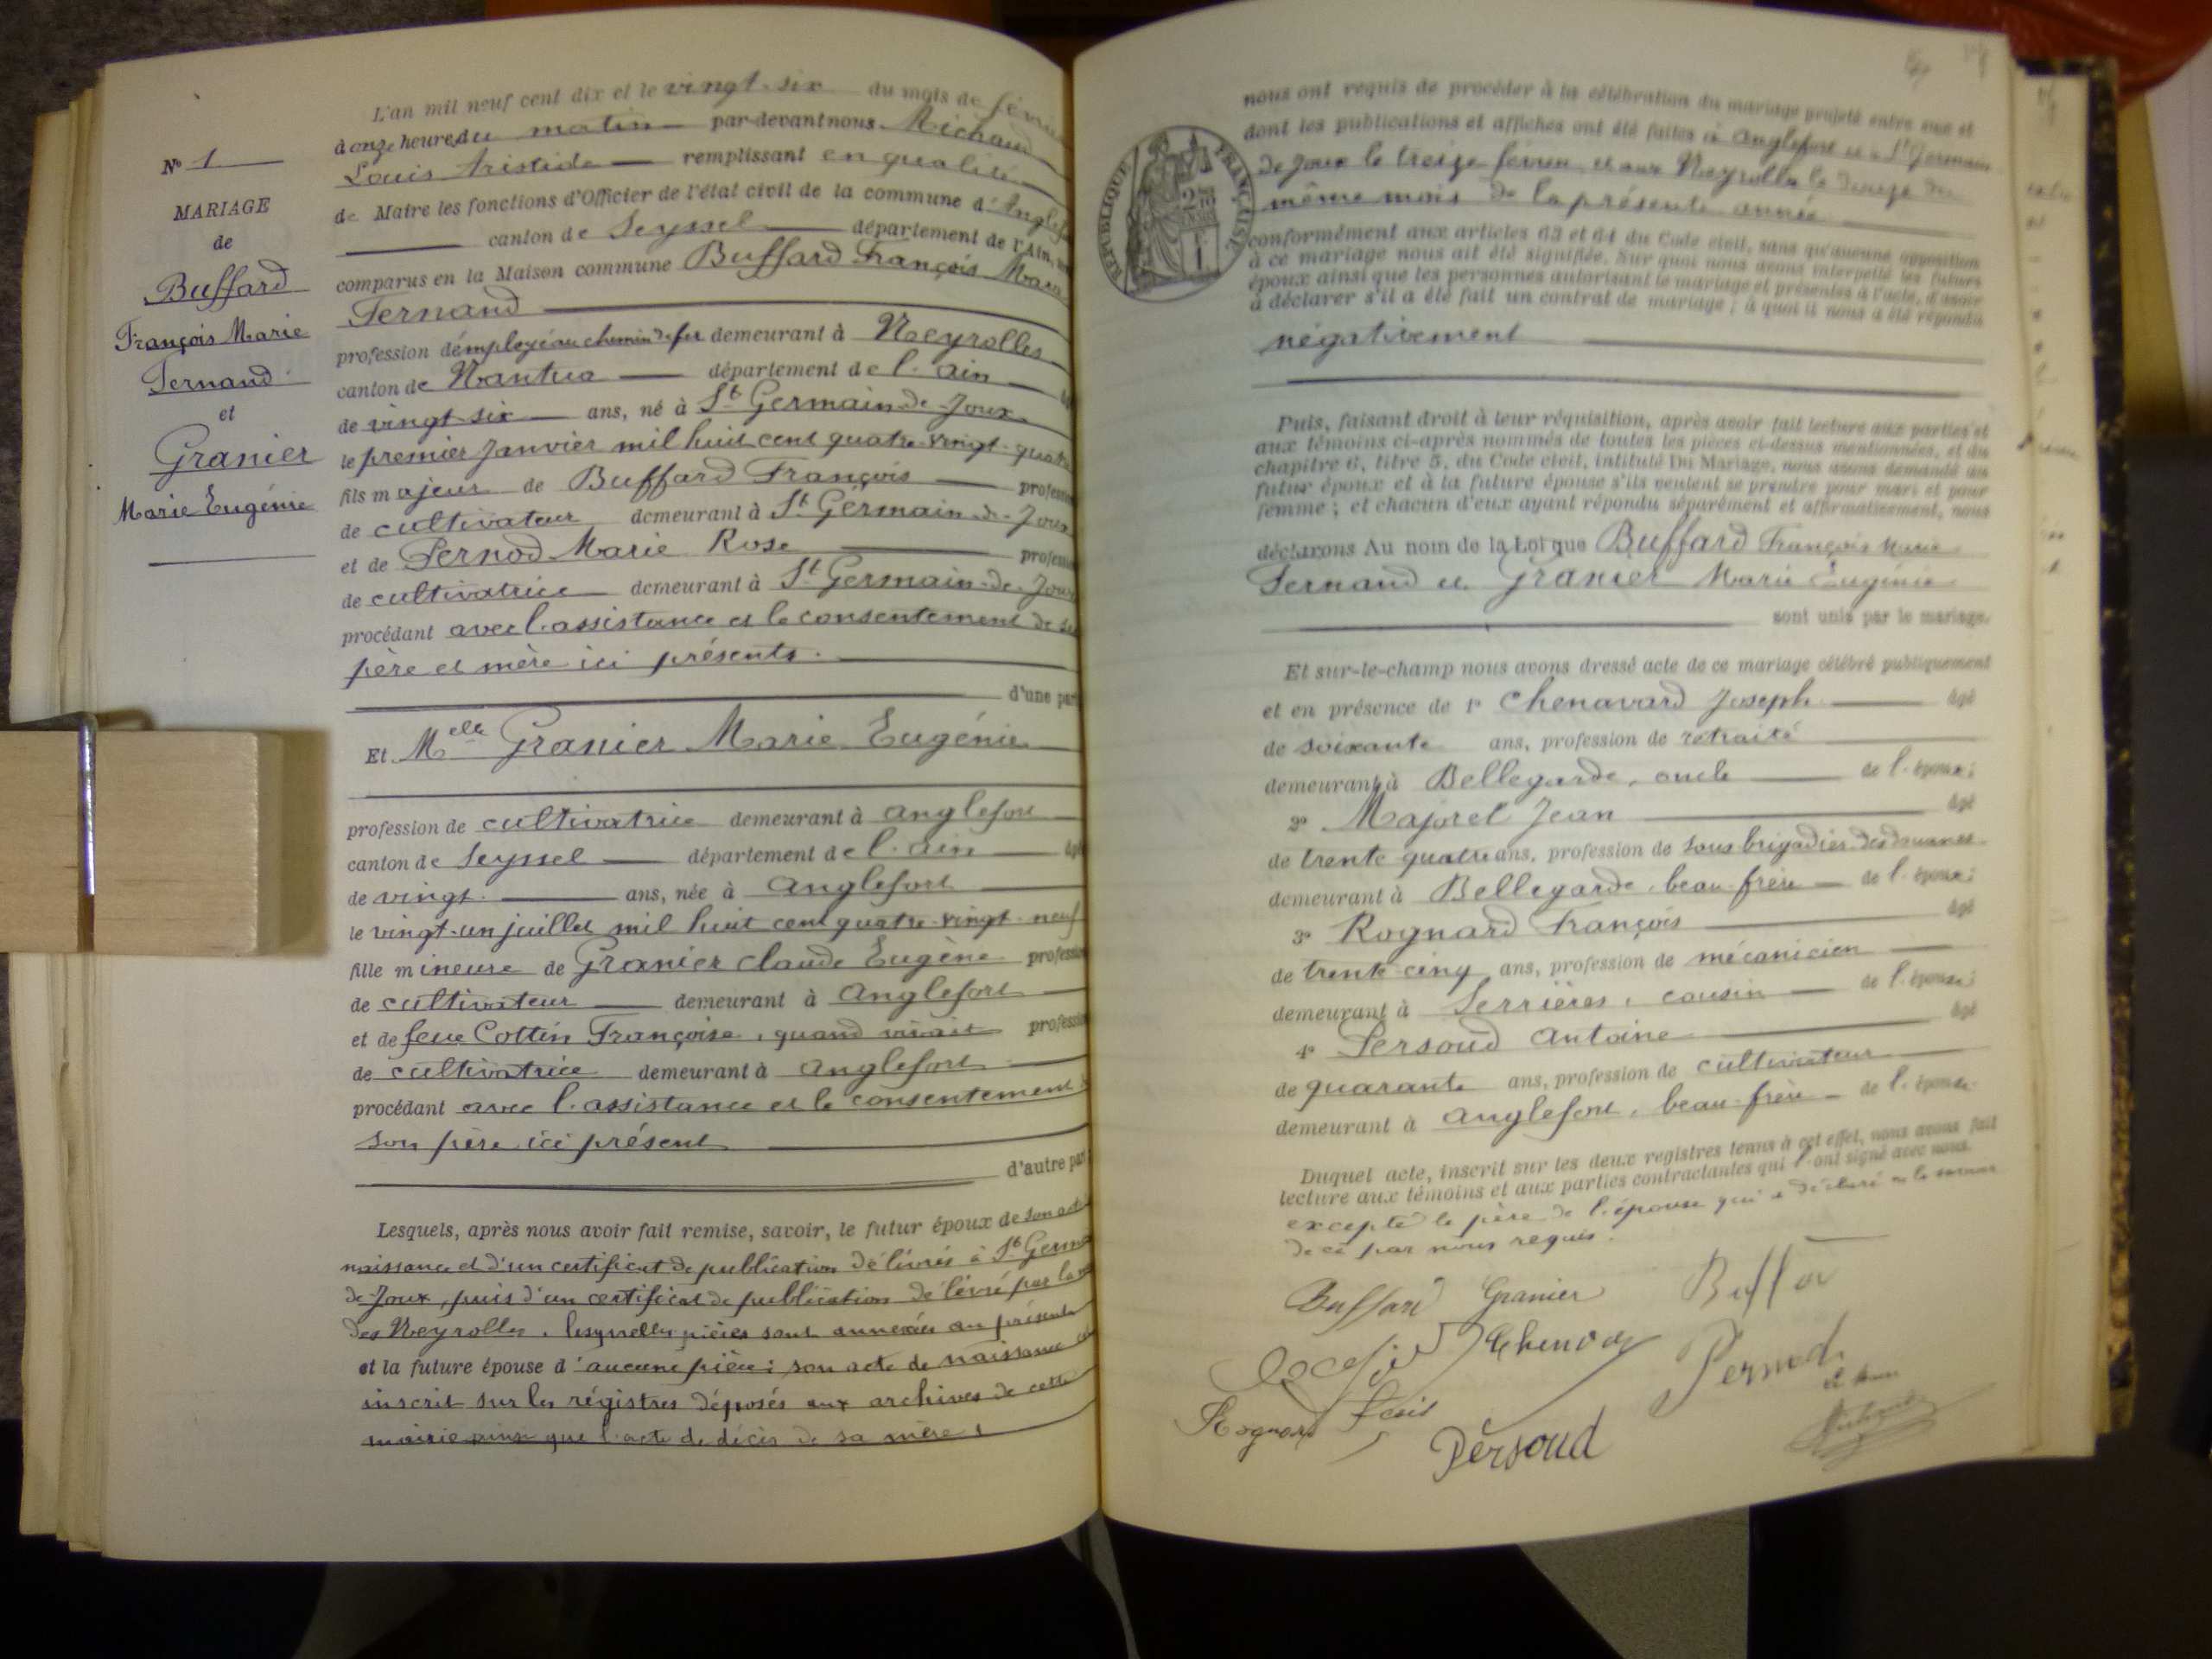 N° 1
MARIAGE
de
Buffard
François Marie
Fernand
et
Granier
Marie Eugénie
L'an mil neuf cent dix et le vingt-six du mois de
à onze heures du matin par-devant nous Michaud
Louis Aristide remplissant en qualité
de Maire les fonctions d'Officier de l'état civil de la commune d'Anglef
canton de Seyssel département de l'Ain,
comparus en la Maison commune Buffard François Marie
Fernand
profession d'employé au chemin de fer demeurant à Neyrolles
canton de Nantua département de l'Ain
de vingt-six ans, né à St Germain-de-Joux
le premier Janvier mil huit cent quatre-vingt-quatre
fils majeur de Buffard François profession
de cultivateur demeurant à St Germain-de-Joux
et de Pernod Marie Rose profession
de cultivatrice demeurant à St Germain-de-Joux
procédant avec l'assistance et le consentement de ses
père et mère ici présents.
d'une part
Et Melle Granier Marie Eugénie
profession de cultivatrice demeurant à Anglefort
canton de Seyssel département de l'Ain âgé
de vingt ans, née à Anglefort
le vingt-un juillet mil huit cent quatre-vingt-neuf
fille mineure de Granier Claude Eugène profession
de cultivateur demeurant à Anglefort
et de feue Cottin Françoise, quand vivait profession
de cultivatrice demeurant à Anglefort
procédant avec l'assistance et le consentement
son père ici présent
d'autre part
Lesquels, après nous avoir fait remise, savoir, le futur époux de son acte
naissance et d'un certificat de publication délivrés à St Germain
de-Joux, puis d'un certificat de publication délivré par la
des Neyrolles, lesquelles pièces sont annexées au présent
et la future épouse d'aucune pièce; son acte de naissance
inscrit sur les régistres déposés aux archives de cette
mairie ainsi que l'acte de décès de sa mère
nous ont requis de procéder à la célébration du mariage projeté entre eux et
dont les publications et affiches ont été faites à Anglefort et à St Germain
de Joux le treize février et aux Neyrolles le douze du
même mois de la présente année
RÉPUBLIQUE FRANÇAISE
conformément aux articles 63 et 64 du Code civil, sans qu'aucune opposition
à ce mariage nous ait été signifiée. Sur quoi nous avons interpellé les futurs
époux ainsi que les personnes autorisant le mariage et présentes à l'acte, d'avoir
à déclarer s'il a été fait un contrat de mariage; à quoi il nous a été répondu
négativement
Puis, faisant droit à leur réquisition, après avoir fait lecture aux parties et
aux témoins ci-après nommés de toutes les pièces ci-dessus mentionnées, et du
chapitre 6, titre 5, du Code civil, intitulé Du Mariage, nous avons demandé au
futur époux et à la future épouse s'ils veulent se prendre pour mari et pour
femme; et chacun d'eux ayant répondu séparément et affirmativement, nous
déclarons Au nom de la Loi que Buffard François Marie
Fernand et Granier Marie Eugénie
sont unis par le mariage.
Et sur-le-champ nous avons dressé acte de ce mariage célébré publiquement
et en présence de 1° Chenavard Joseph âgé
de soixante ans, profession de retraité
demeurant à Bellegarde, oncle de l'époux;
2° Majorel Jean âgé
de trente quatre ans, profession de sous brigadier des douanes
demeurant à Bellegarde, beau-frère de l'époux;
3° Rognard François âgé
de trente-cinq ans, profession de mécanicien
demeurant à Serrières, cousin de l'épouse;
4° Persoud Antoine âgé
de quarante ans, profession de cultivateur
demeurant à Anglefort, beau-frère de l'épouse
Duquel acte, inscrit sur les deux registres tenus à cet effet, nous avons fait
lecture aux témoins et aux parties contractantes qui l'ont signé avec nous
excepté le père de l'épouse qui a déclaré ne le savoir
de ce par nous requis.
Buffard Granier
Pernod
Rognard
Persoud